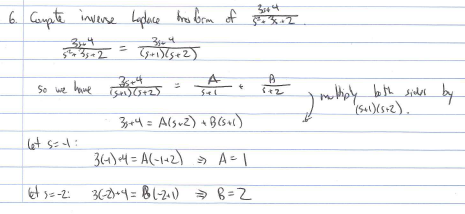 6. Compute inverse Laplace transform of (3s+4)/(s²+3s+2)
(3s+4)/(s²+3s+2) = (3s+4)/((s+1)(s+2))
so we have (3s+4)/((s+1)(s+2)) = A/(s+1) + B/(s+2)
multiply both sides by (s+1)(s+2).
3s+4 = A(s+2) + B(s+1)
let s=-1:
3(-1)+4 = A(-1+2) ⇒ A=1
let s=-2: 3(-2)+4 = B(-2+1) ⇒ B=2